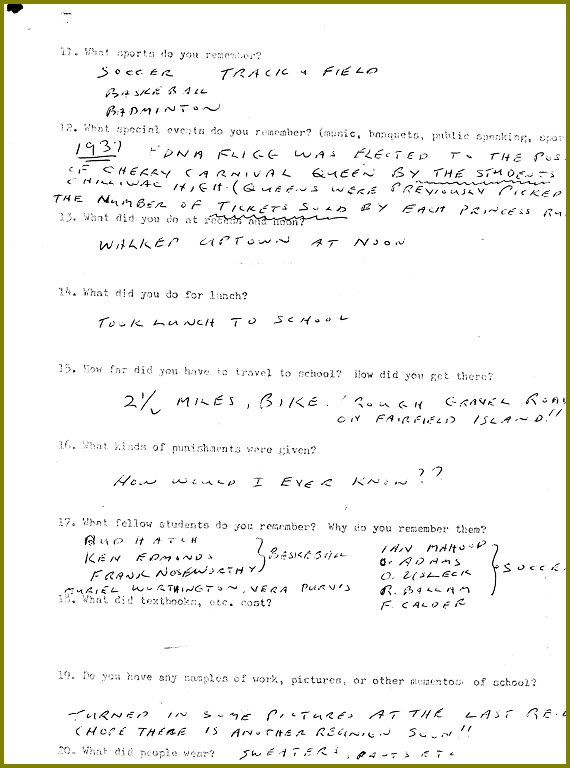 11. What sports do you remember?
SOCCER TRACK & FIELD
BASKEBALL
BADMINTON
12. What special events do you remember? (music, banquets, public speaking, spor
1937 EDNA FLIGG WAS ELECTED TO THE POS
OF CHERRY CARNIVAL QUEEN BY THE STUDENTS
CHILLIWAC HIGH. (QUEENS WERE PREVIOUSLY PICKED
THE NUMBER OF TICKETS SOLD BY EACH PRINCESS RU
13. What did you do at recess and noon?
WALKED UPTOWN AT NOON
14. What did you do for lunch?
TOOK LUNCH TO SCHOOL
15. How far did you have to travel to school? How did you get there?
2 1/2 MILES, BIKE. ROUGH GRAVEL ROA
ON FAIRFIELD ISLAND!!
16. What kinds of punishments were given?
HOW WOULD I EVER KNOW??
17. What fellow students do you remember? Why do you remember them?
BUD HATCH
KEN EDMINDS
FRANK NOSEWORTHY
BASKEBALL
MURIEL WORTHINGTON, VERA PURVIS
IAN MAHOOD
ADAMS
O. USLECK
R. BALLAM
F. CALDER
SOCCE
18. What did textbooks, etc. cost?
19. Do you have any samples of work, pictures, or other mementos of school?
TURNED IN SOME PICTURES AT THE LAST RE-U
(HOPE THERE IS ANOTHER REUNION SOON!!
20. What did people wear? SWEATERS, PANTS ETC